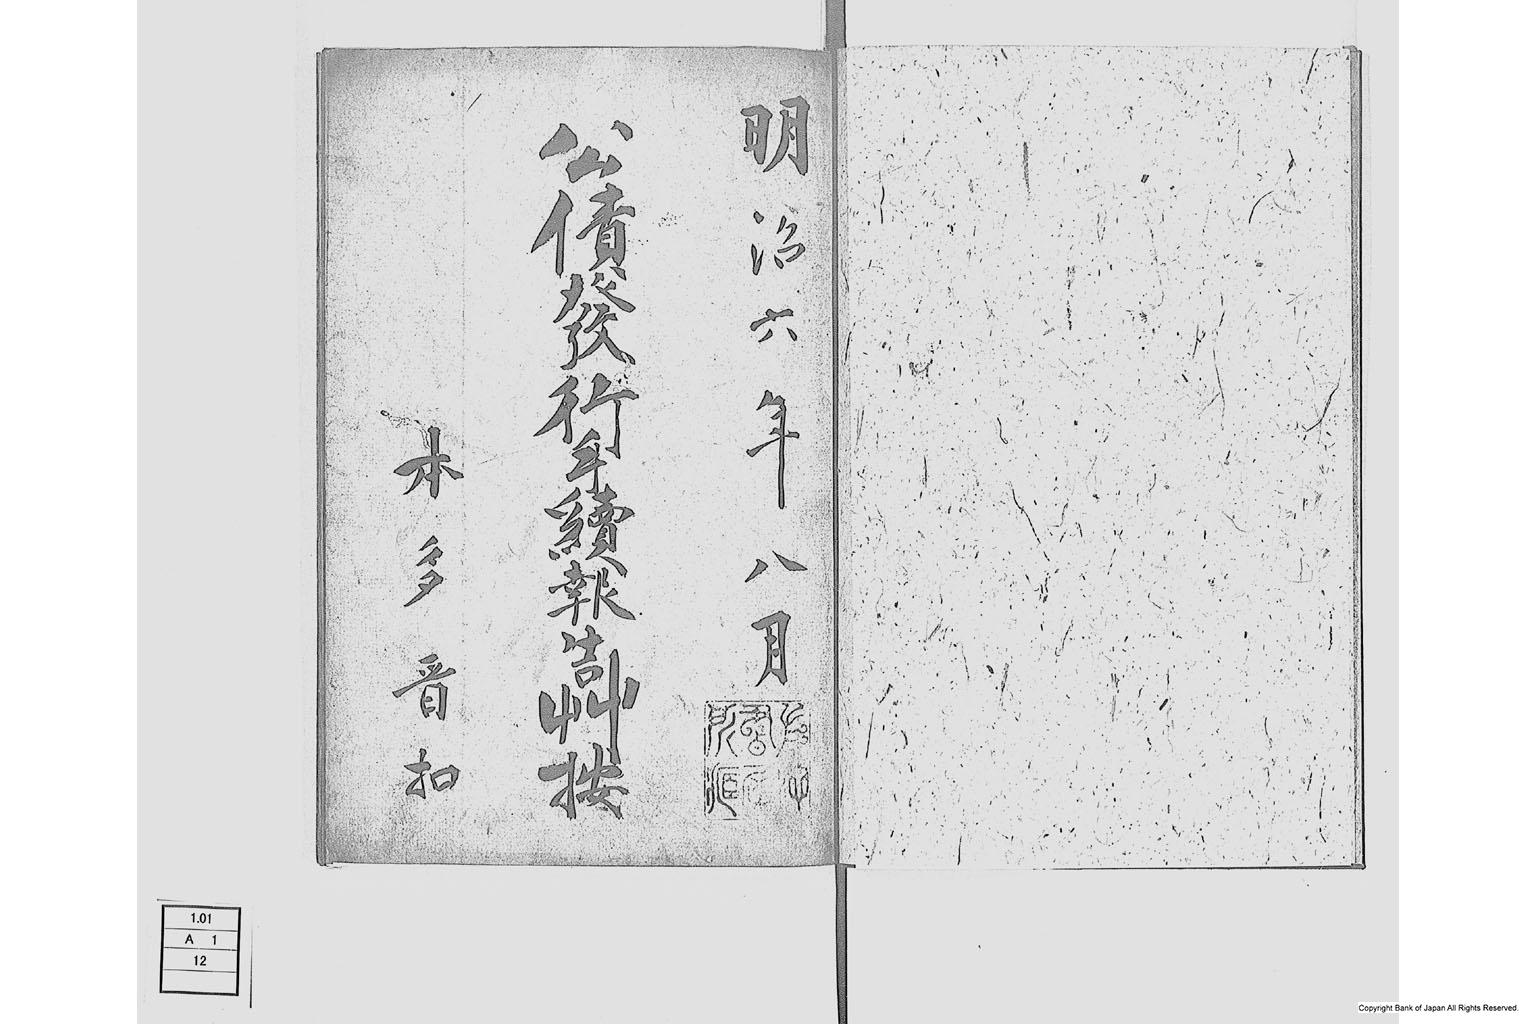 明治六年八月
公債發行手續報告艸按
本多晋扣
1.01
A 1
12
Copyright Bank of Japan All Rights Reserved.